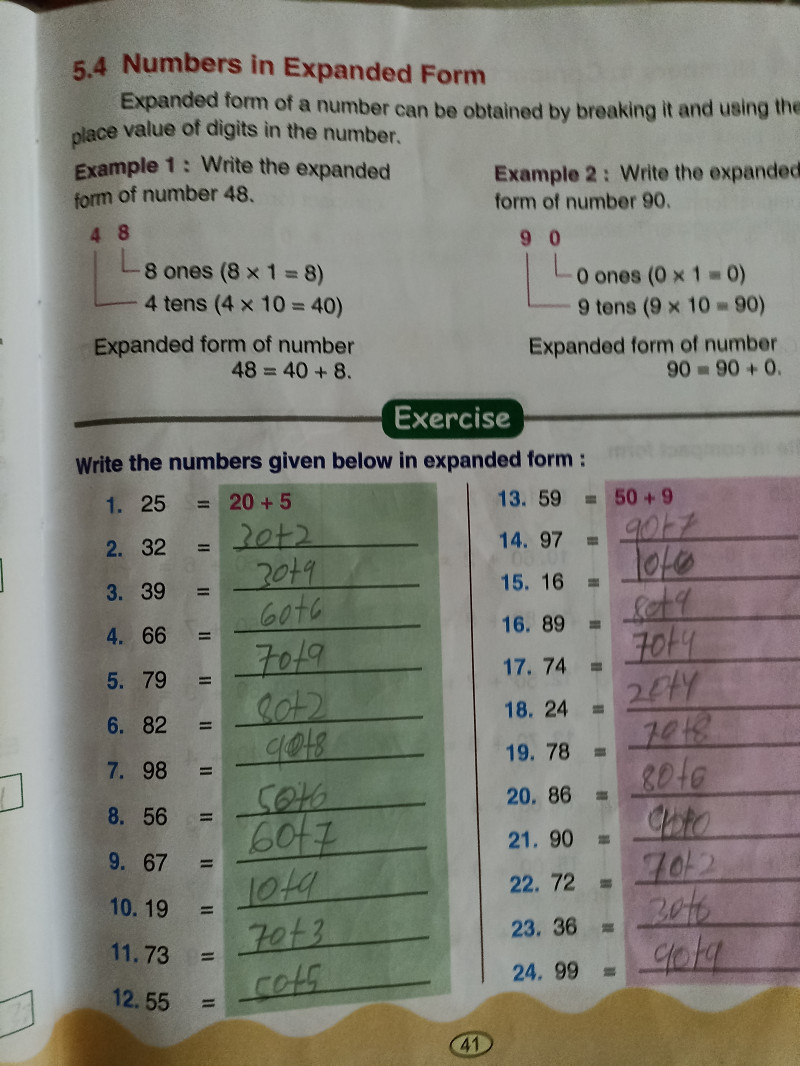 5.4 Numbers in Expanded Form
Expanded form of a number can be obtained by breaking it and using the
place value of digits in the number.
Example 1 : Write the expanded
form of number 48.
4 8
8 ones (8 × 1 = 8)
4 tens (4 × 10 = 40)
Expanded form of number
48 = 40 + 8.
Example 2 : Write the expanded
form of number 90.
9 0
0 ones (0 × 1 = 0)
9 tens (9 × 10 = 90)
Expanded form of number
90 = 90 + 0.
Exercise
Write the numbers given below in expanded form :
1. 25 = 20 + 5
2. 32 = 30+2
3. 39 = 30+9
4. 66 = 60+6
5. 79 = 70+9
6. 82 = 80+2
7. 98 = 90+8
8. 56 = 50+6
9. 67 = 60+7
10. 19 = 10+9
11. 73 = 70+3
12. 55 = 50+5
13. 59 = 50 + 9
14. 97 = 90+7
15. 16 = 10+6
16. 89 = 80+9
17. 74 = 70+4
18. 24 = 20+4
19. 78 = 70+8
20. 86 = 80+6
21. 90 = 90+0
22. 72 = 70+2
23. 36 = 30+6
24. 99 = 90+9
41